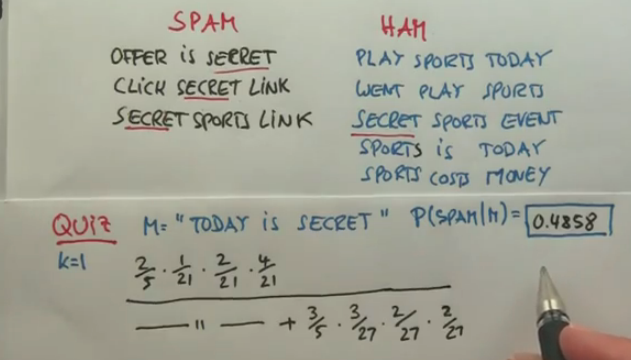 SPAM
OFFER is SECRET
CLICK SECRET LINK
SECRET SPORTS LINK
HAM
PLAY SPORTS TODAY
WENT PLAY SPORTS
SECRET SPORTS EVENT
SPORTS is TODAY
SPORTS COSTS MONEY
QUIZ M= "TODAY is SECRET" P(SPAM|M)= 0.4858
k=1
2/5 · 1/21 · 2/21 · 4/21
—— " —— + 3/5 · 3/27 · 2/27 · 2/27